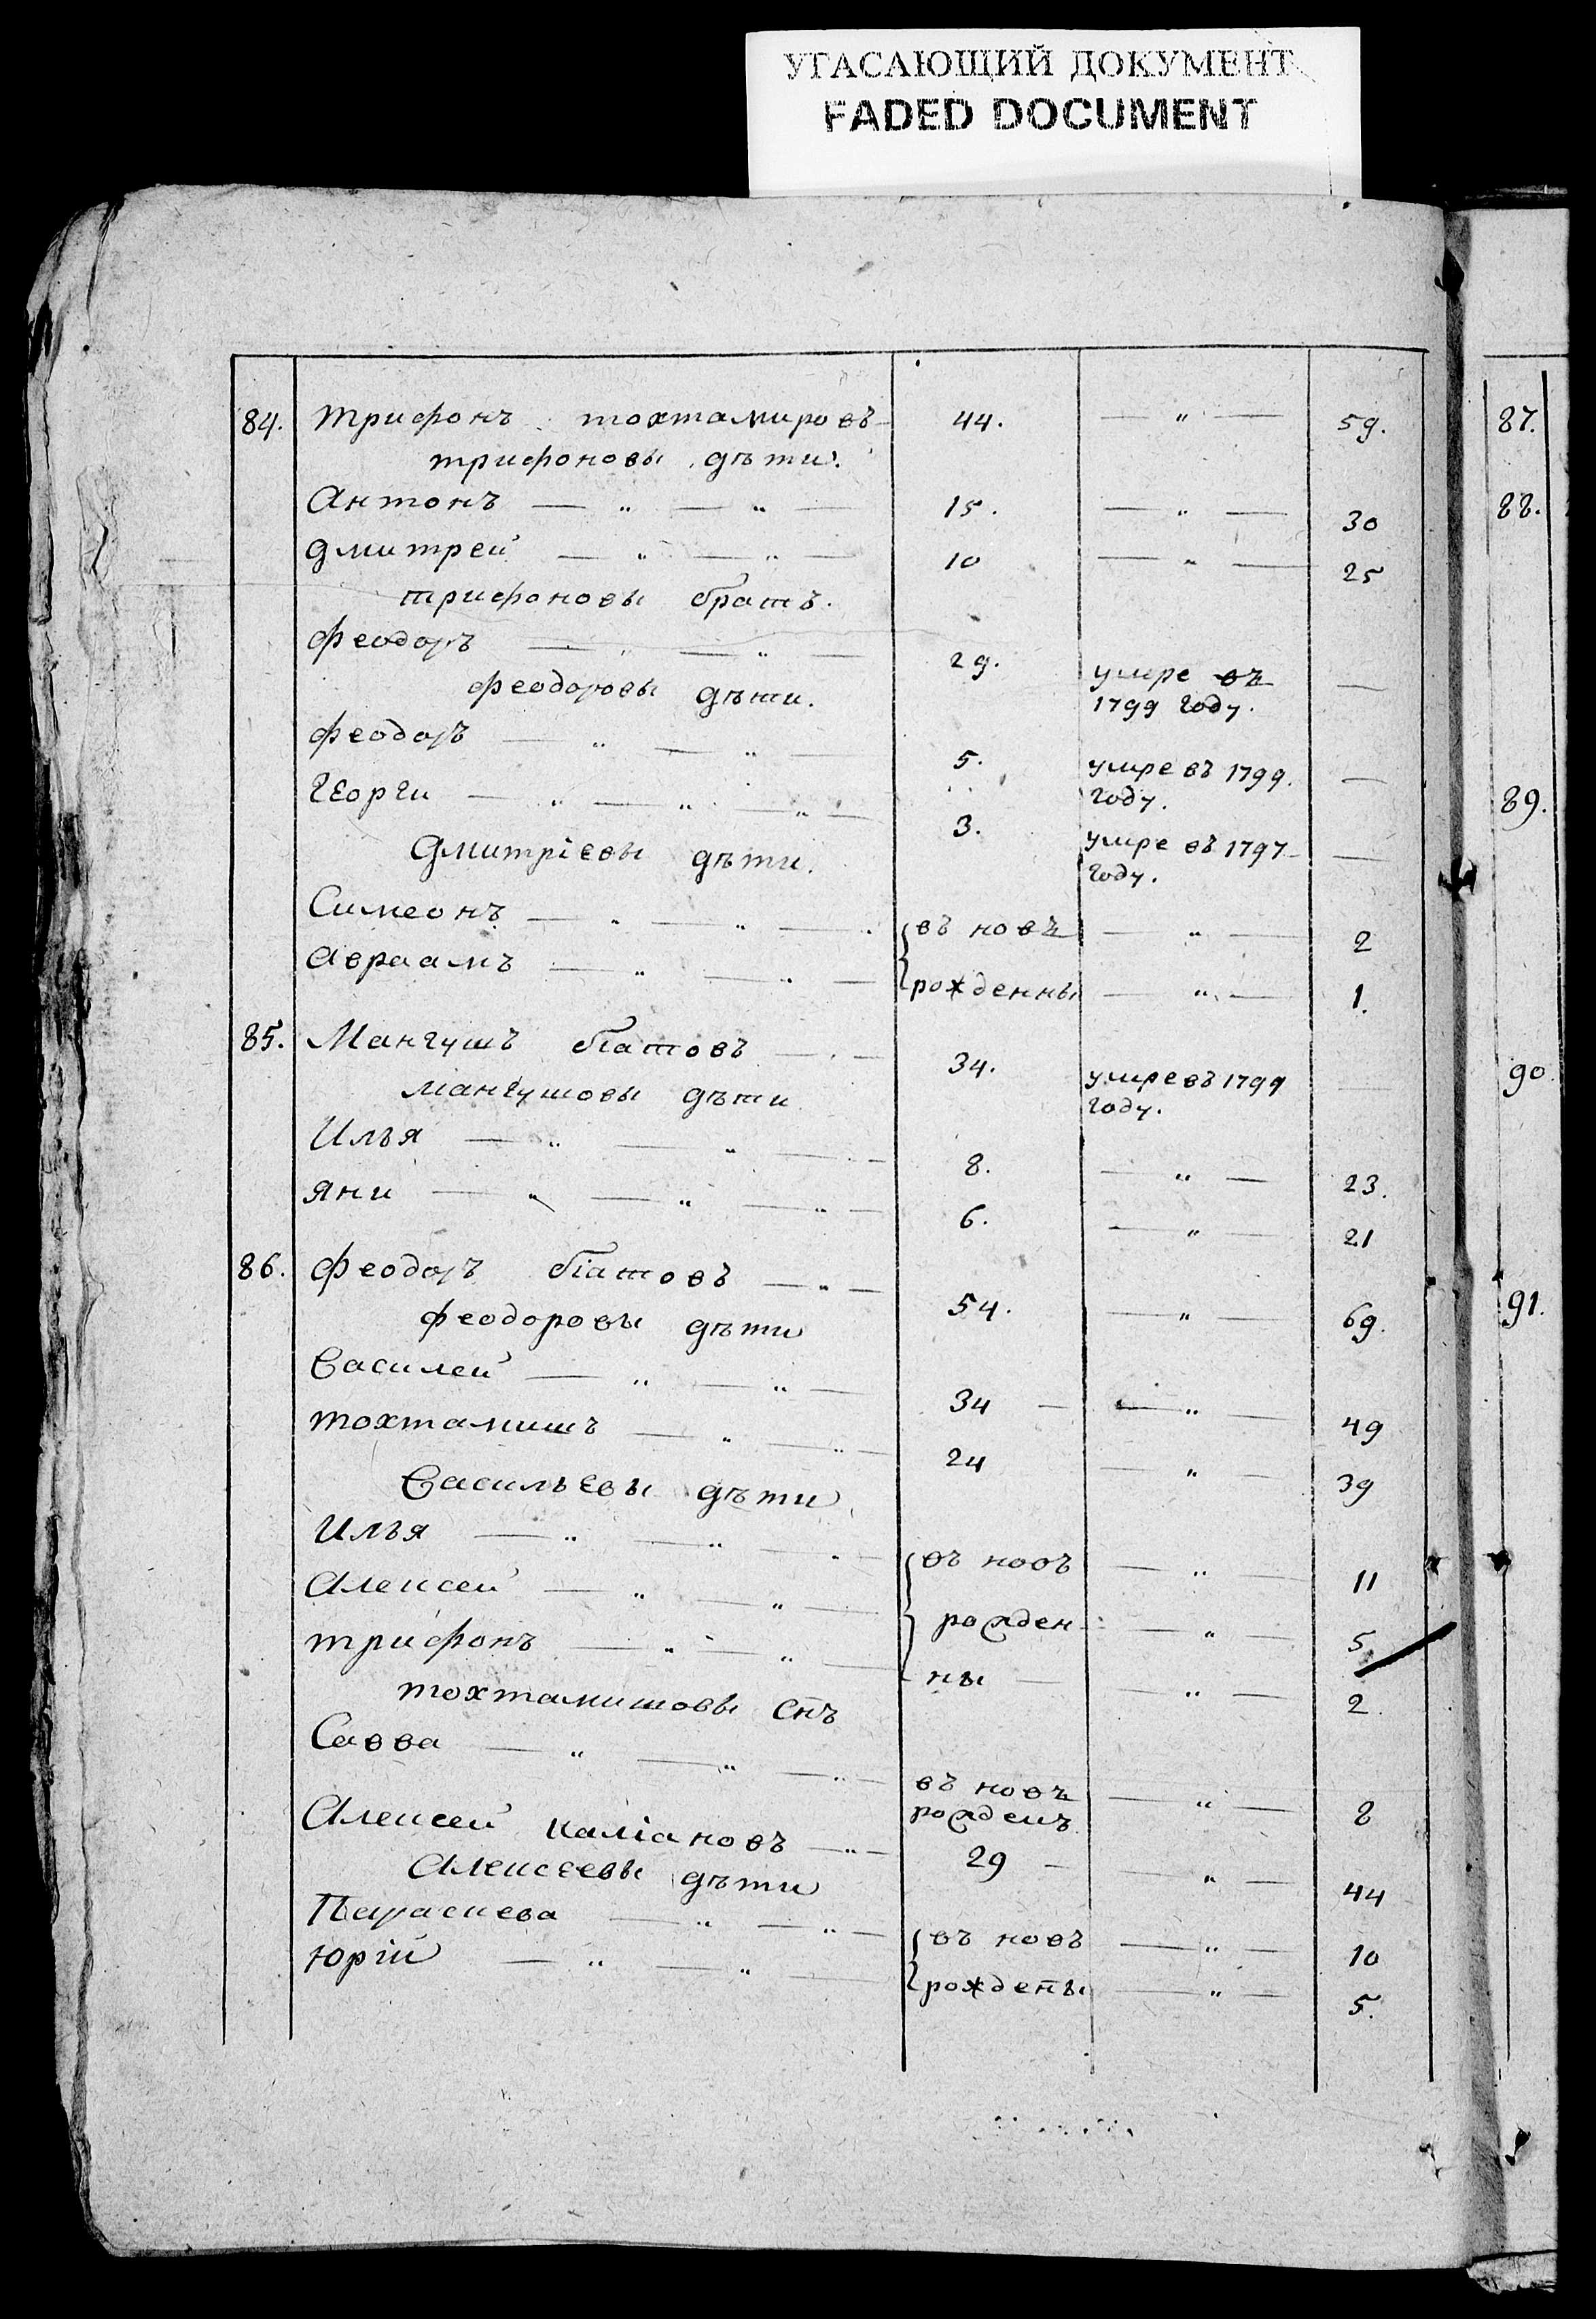 УГАСАЮЩИЙ ДОКУМЕНТ
FADED DOCUMENT
84. трифонъ тохтамировъ 44. — " — 59.
трифоновы дѣти.
Антонъ — " — " — 15. — " — 30
дмитрей — " — " — 10 — " — 25
трифоновы братъ.
феодоръ — " — " — 29. умре въ 1799 году. —
феодоровы дѣти.
феодоръ — " — " — 5. умре въ 1799. году. —
Георги — " — " — " — 3. умре въ 1797 году. —
дмитріевы дѣти.
Симеонъ — " — " — въ новъ — " — 2
Авраамъ — " — " — рожденны — " — 1.
85. Мангушъ біатовъ — " — 34. умре въ 1799 году. —
мангушовы дѣти
Илья — " — " — 8. — " — 23.
яни — " — " — " — 6. — " — 21
86. феодоръ біатовъ — " — 54. — " — 69.
феодоровы дѣти
Василей — " — " — 34 — — " — 49
тохтамишъ — " — " — 24 — " — 39
Васильевы дѣти
Илья — " — " — " — въ новъ — " — 11
Алексей — " — " — рожден — " — 5
трифонъ — " — " — ны — — " — 2.
тохтамишовы снъ
Савва — " — " — " — въ новъ рожденъ — " — 8
Алексей каліановъ — " — 29 — — " — 44
Алексеевы дѣти
Параскева — " — " — въ новъ — " — 10
юрій — " — " — рождены — " — 5.
87.
88.
89.
90
91.